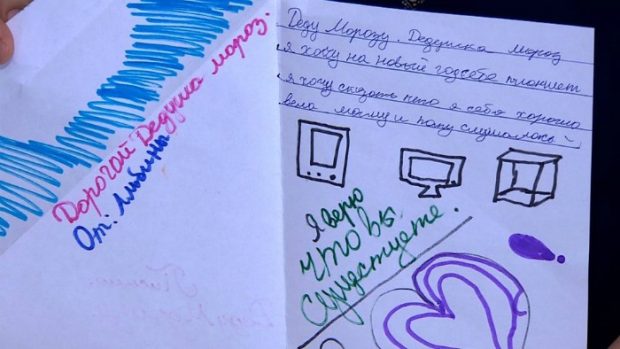 Дорогой Дедушка мороз.
От: Любины
Деду Морозу. Дедушка мороз
я хочу на новый год себе планшет
я хочу сказать чего я себя хорошо
вела маму и папу слушалась
Я верю
что вы
существуете.